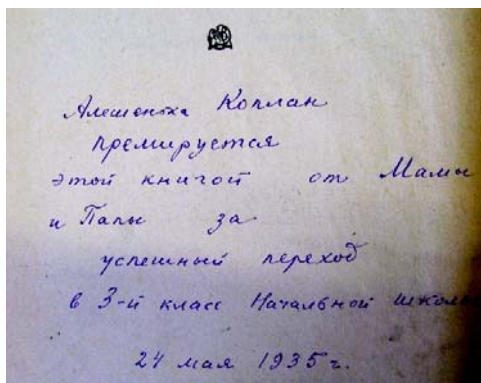 Алешенька Коплан
премируется
этой книгой от Мамы
и Папы за
успешный переход
в 3-й класс Начальной школы
24 мая 1935 г.